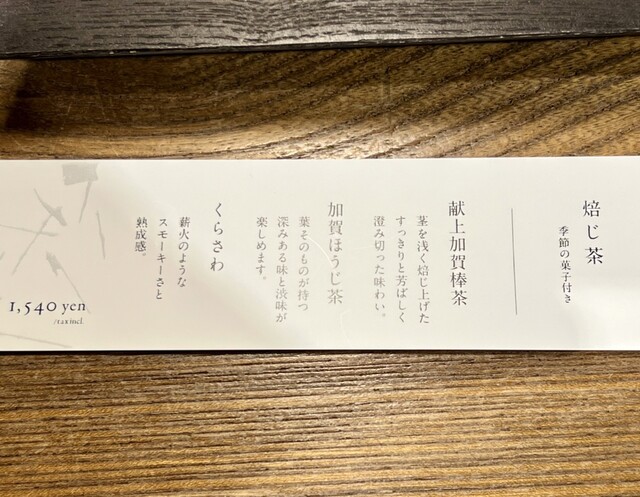 焙じ茶
季節の菓子付き
献上加賀棒茶
茎を浅く焙じ上げた
すっきりと芳ばしく
澄み切った味わい。
加賀ほうじ茶
葉そのものが持つ
深みある味と渋味が
楽しめます。
くらさわ
薪火のような
スモーキーさと
熟成感。
1,540 yen
/tax incl.